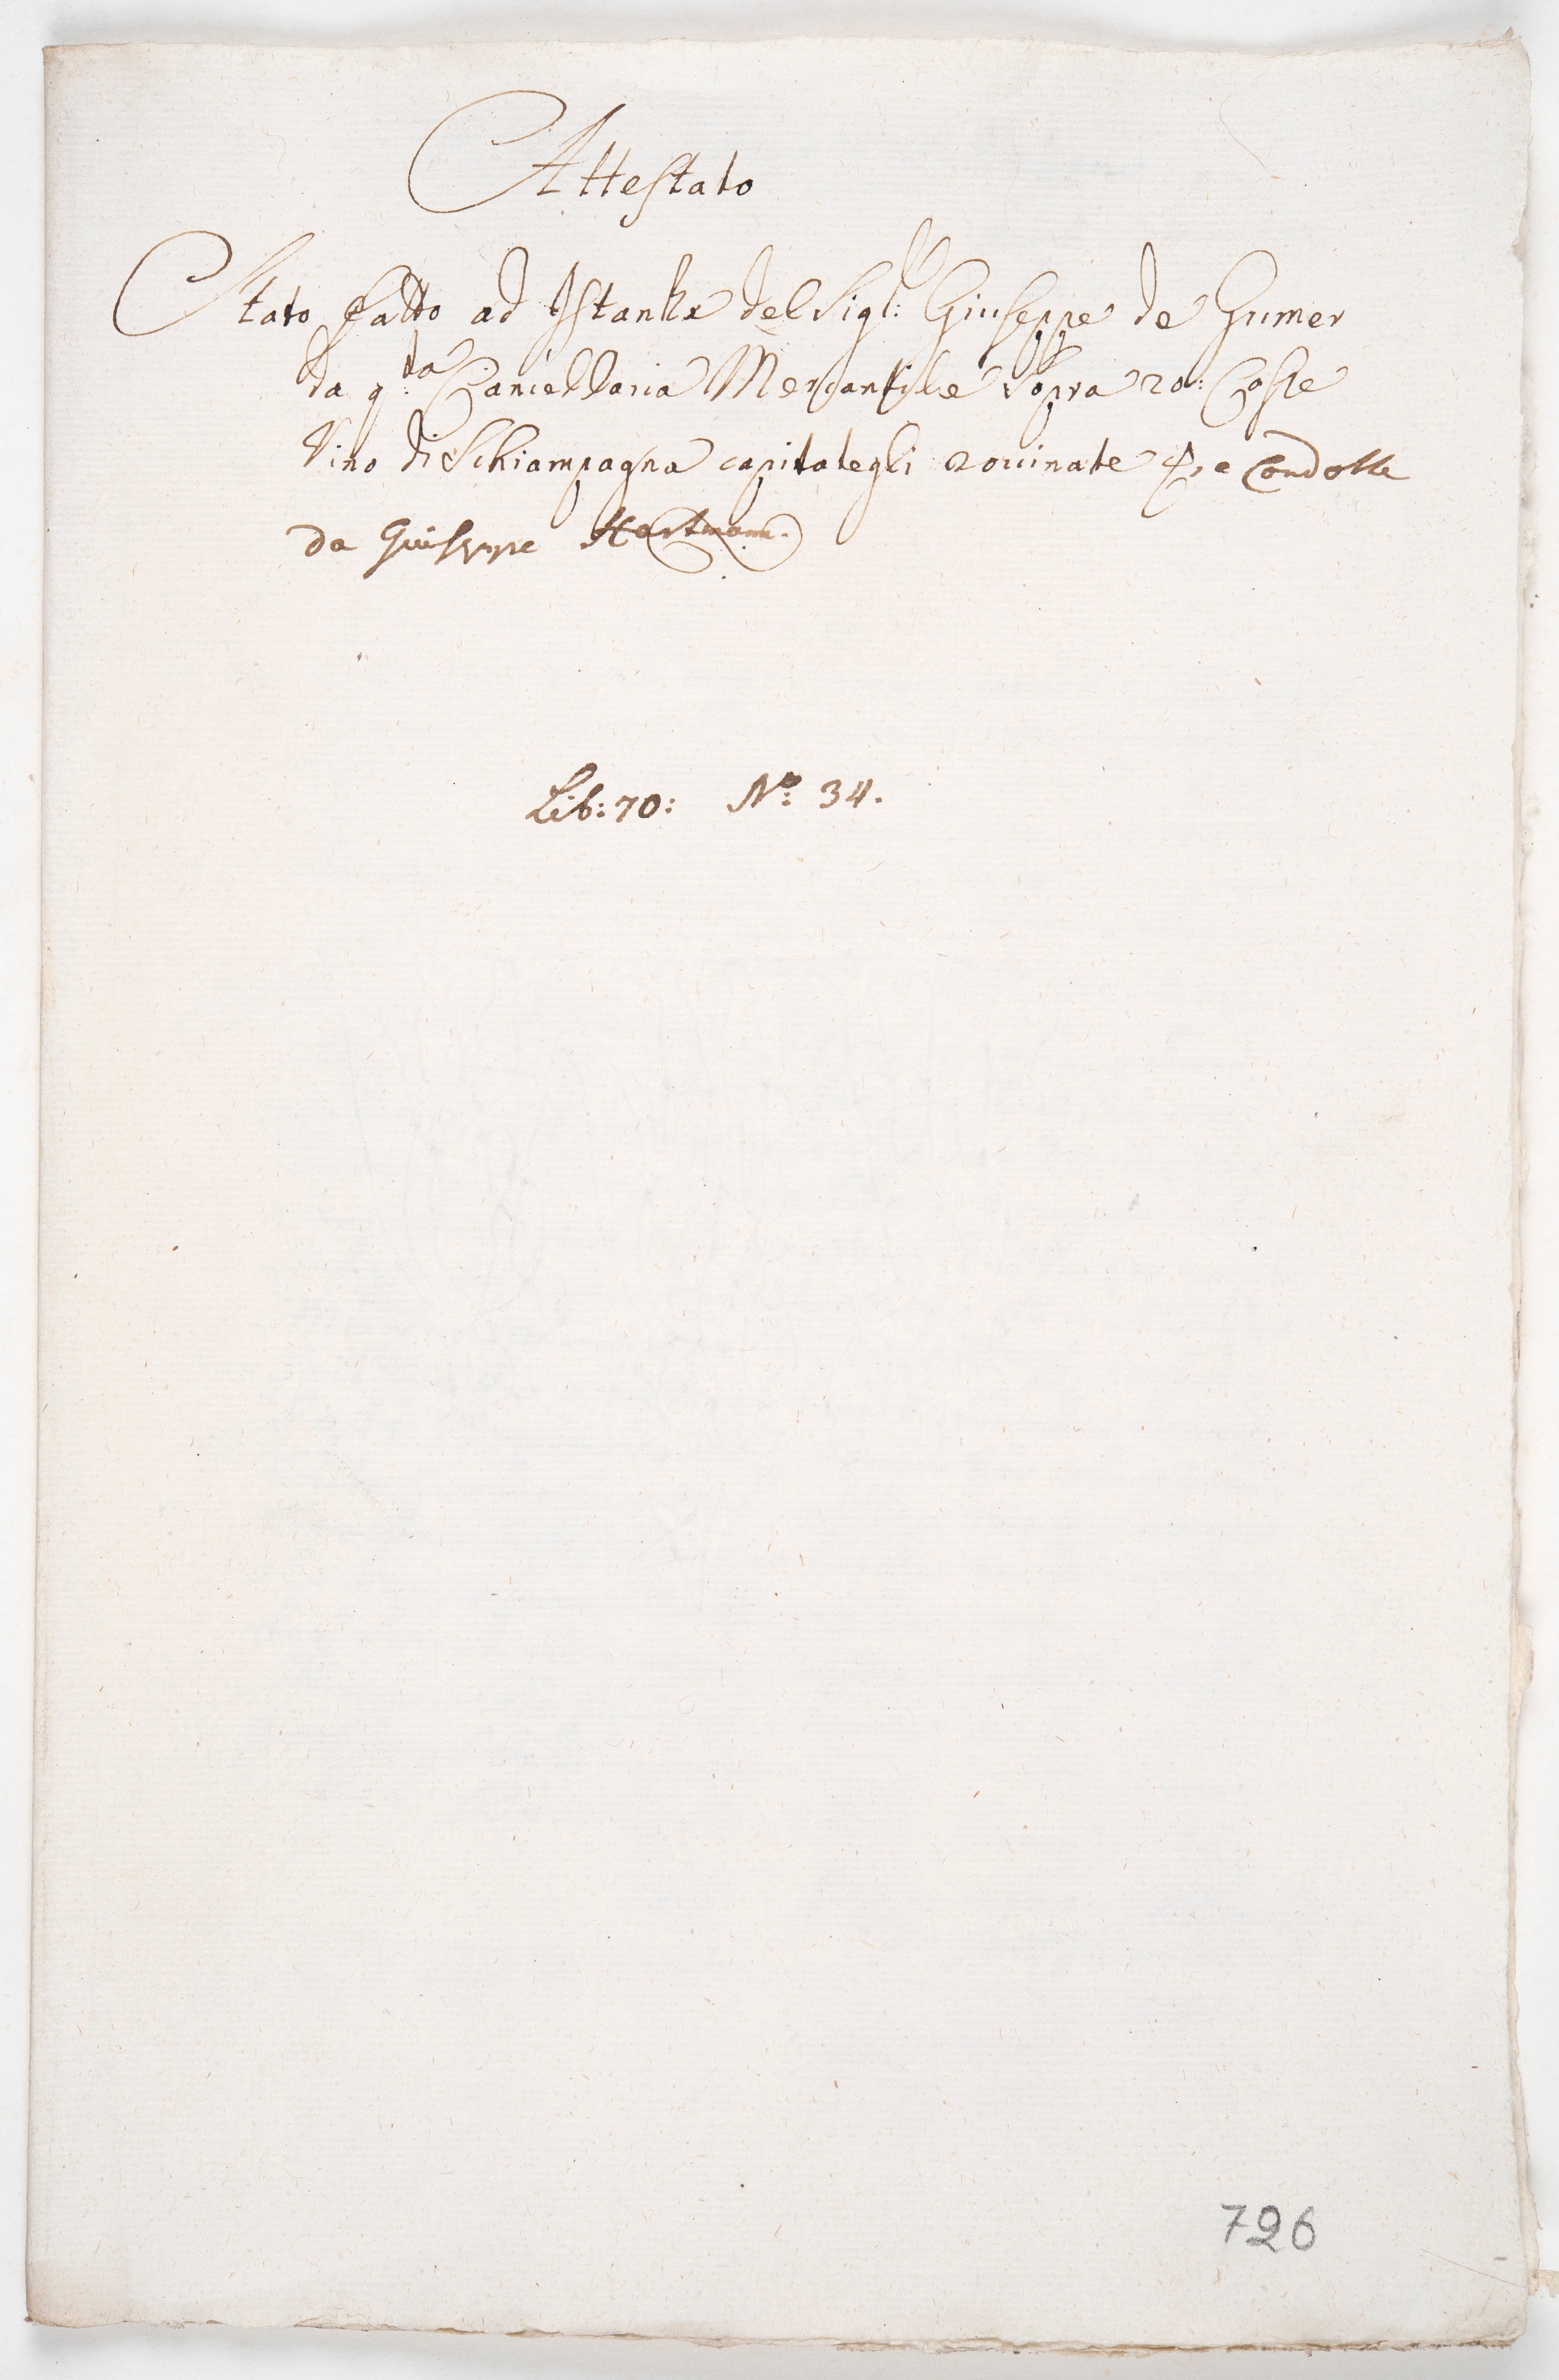 Attestato
Stato fatto ad Istanza del Sigl: Giuseppe de Gumer
da q:ta Cancellaria Mercantile sopra 20: Casse
Vino di Schiampagna capitategli rouinate &, e Condotte
da Giuseppe Hartmann.
Lib: 70: No: 34.
726